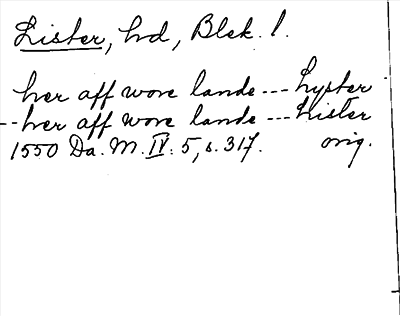 Lister, hd, Blek. l.
her aff wore lande --- Lyster
-- her aff wore lande --- Lister
1550 Da. M. IV: 5, s. 317. orig.